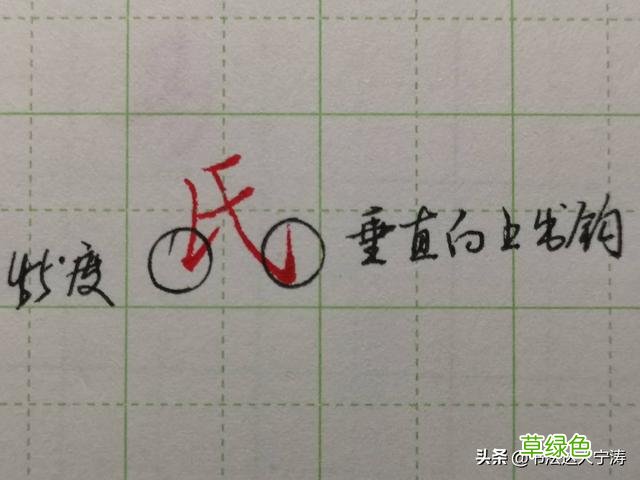 氏
度
垂直向上出钩
草绿色
头条 @书法达人宁涛